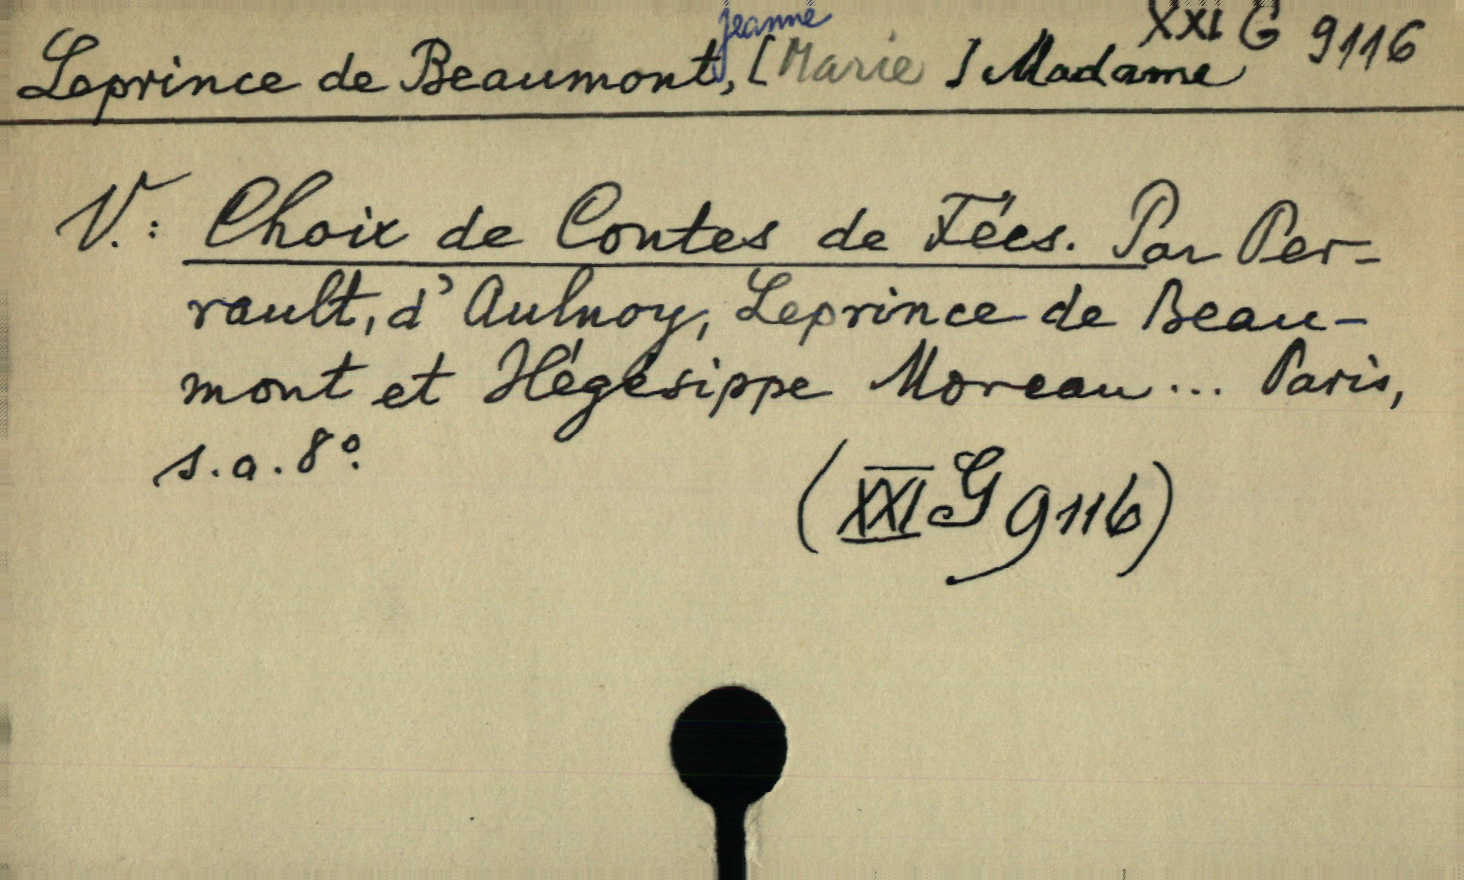 XXI G 9116
Leprince de Beaumont, Jeanne [Marie] Madame
V.: Choix de Contes de Fées. Par Per-
rault, d'Aulnoy, Leprince de Beau-
mont et Hégésippe Moreau... Paris,
s.a. 8º.
(XXI G 9116)